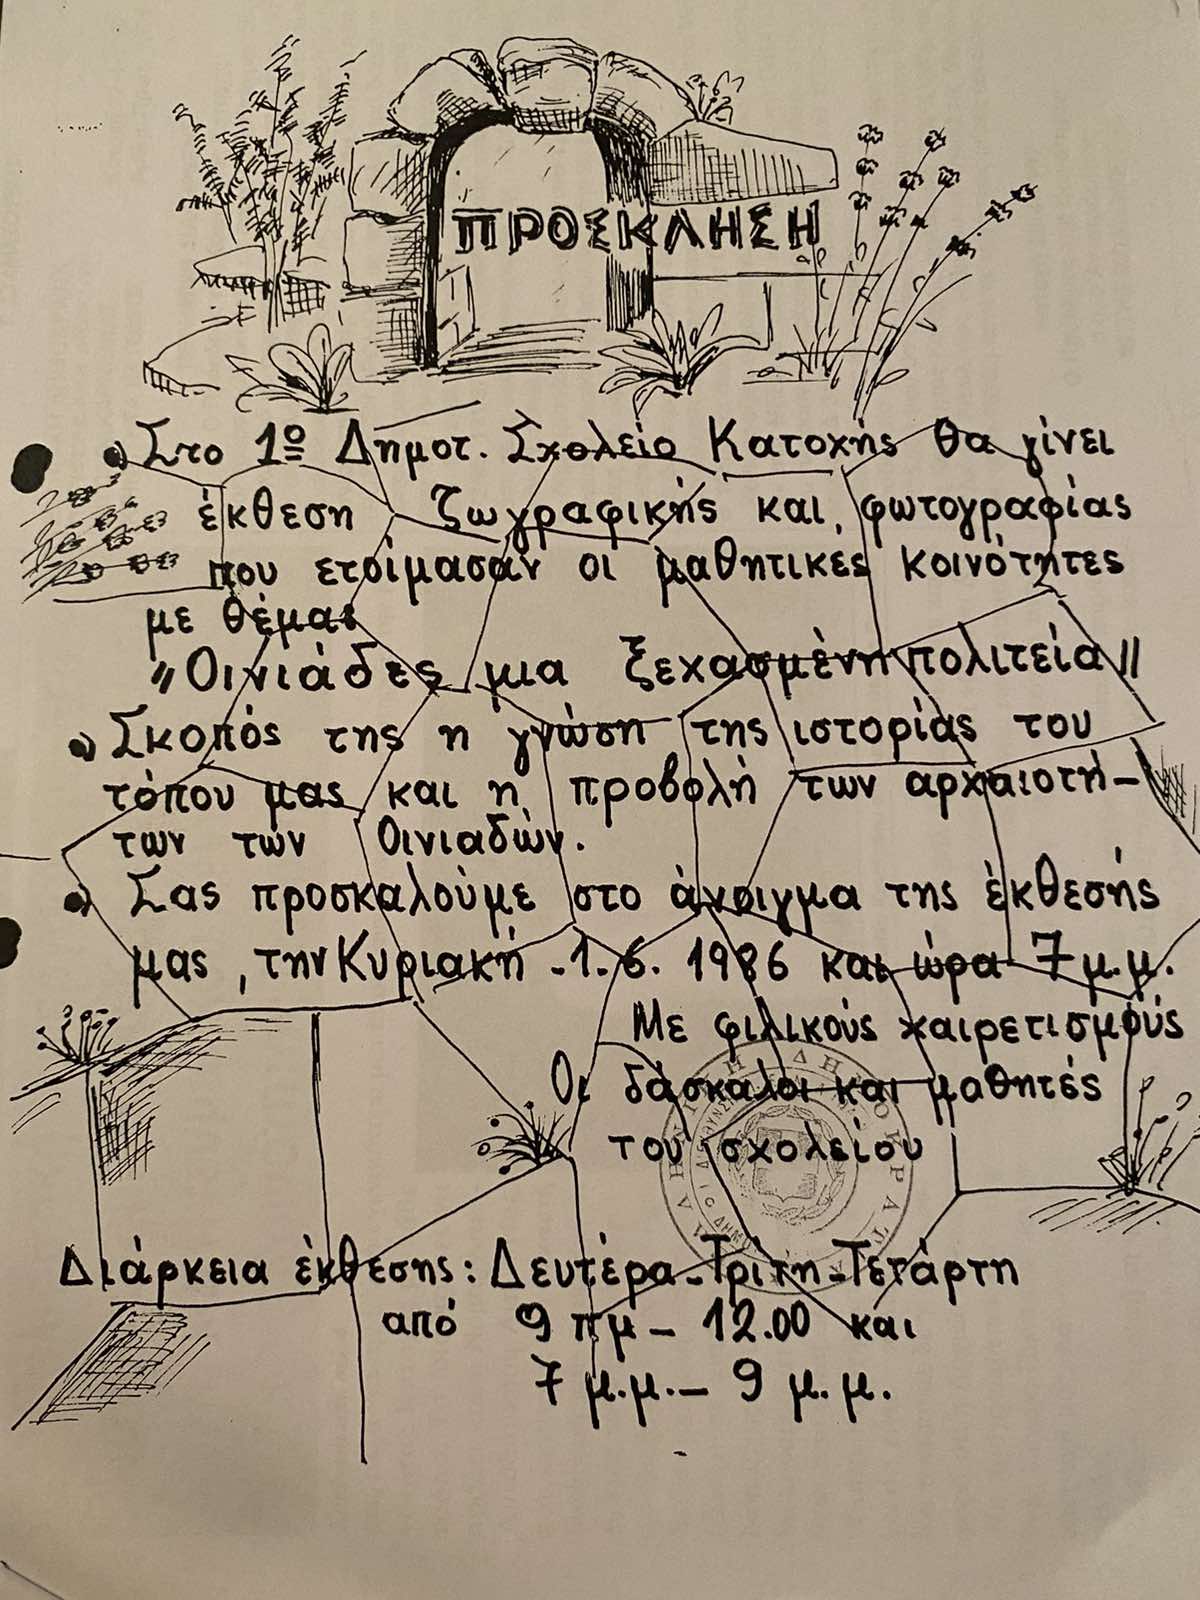 ΠΡΟΣΚΛΗΣΗ
Στο 1ο Δημοτ. Σχολείο Κατοχής θα γίνει
έκθεση ζωγραφικής και φωτογραφίας
που ετοίμασαν οι μαθητικές κοινότητες
με θέμα:
"Οινιάδες μια ξεχασμένη πολιτεία"
Σκοπός της η γνώση της ιστορίας του
τόπου μας και η προβολή των αρχαιοτή-
των των Οινιαδών.
Σας προσκαλούμε στο άνοιγμα της έκθεσής
μας, την Κυριακή -1.6.1986 και ώρα 7 μ.μ.
Με φιλικούς χαιρετισμούς
Οι δάσκαλοι και μαθητές
του σχολείου
Διάρκεια έκθεσης: Δευτέρα-Τρίτη-Τετάρτη
από 9 πμ - 12.00 και
7 μ.μ. - 9 μ.μ.